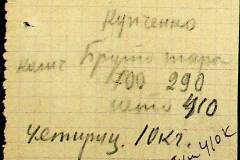 Купченко
колич Брутто тара
700 290
нето 410
четириц. 10кг.
410к